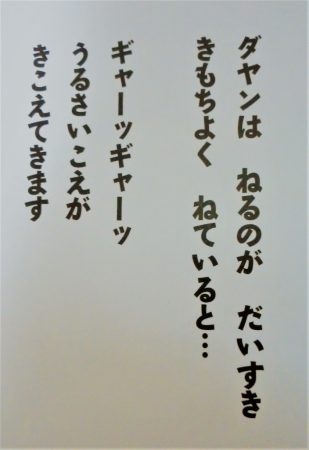 ダヤンは　ねるのが　だいすき
きもちよく　ねていると…
ギャーッギャーッ
うるさいこえが
きこえてきます